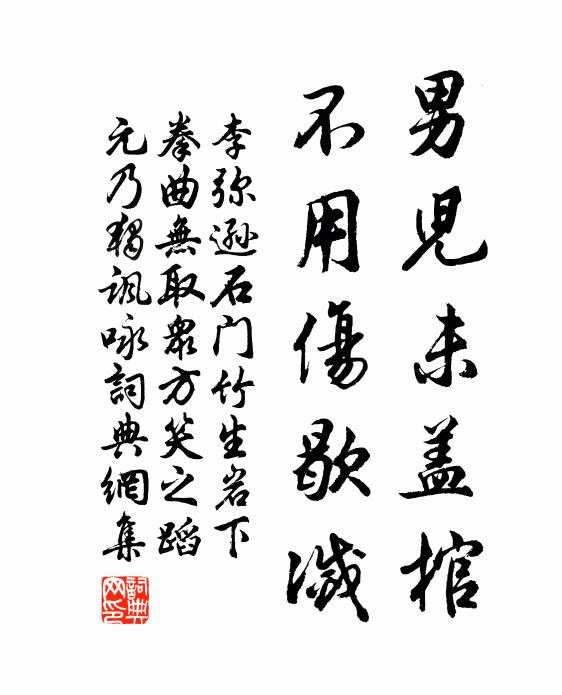 男兒未盖棺
不用傷歇滅
李弥遜石门竹生岩下
拳曲無取衆方笑之蹈
元乃獨諷咏詞典網集
詞典
网印